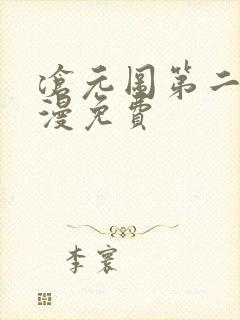 滄元圖第二
漫免費
李寰